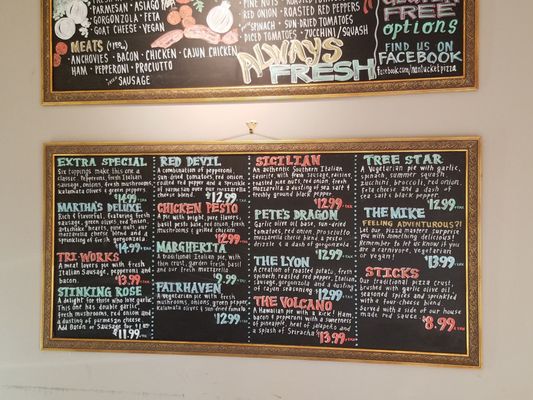 PARMESAN · ASIAGO
GORGONZOLA · FETA
GOAT CHEESE
MEATS
ANCHOVIES · BACON · CHICKEN · CAJUN CHICKEN
HAM · PEPPERONI · PROCIUTTO
SAUSAGE
PINE NUTS · ROASTED TOMATOES
RED ONION · ROASTED RED PEPPERS
SPINACH · SUN-DRIED TOMATOES
DICED TOMATOES · ZUCCHINI/SQUASH
ALWAYS
FRESH
FREE
options
FIND US ON
FACEBOOK
facebook.com/nantucketpizza
EXTRA SPECIAL
Six toppings make this one a
classic. Pepperoni, fresh Italian
sausage, onions, fresh mushrooms,
kalamata olives & green peppers.
14.99
MARTHA'S DELUXE
Rich & flavorful, featuring fresh
sausage, green olives, red onion,
artichoke hearts, pine nuts, our
mozzarella cheese blend and a
sprinkling of fresh gorgonzola.
14.99
TRI-WORKS
A meat lovers pie with fresh
Italian Sausage, pepperoni
and bacon.
13.99
STINKING ROSE
A delight for those who love garlic.
This one has double garlic,
fresh mushrooms, red onion and
a dusting of parmesan cheese.
Add Bacon or Sausage for $1
$11.99
RED DEVIL
A combination of pepperoni,
sun dried tomatoes, red onion,
roasted red pepper and a sprinkle
of parmesan over our mozzarella
cheese blend.
$12.99
CHICKEN PESTO
A pie with bright pesto flavors,
basil pesto base, red onion, fresh
mushrooms & grilled chicken
12.99
MARGHERITA
A traditional Italian pie, with
thin crust, garden fresh basil
and our fresh mozzarella
9.99
FAIRHAVEN
A vegetarian pie with fresh
mushrooms, onions, green pepper,
kalamata olives & sun dried tomato
12.99
SICILIAN
An authentic Southern Italian
favorite, with fresh sausage, raisins,
roasted pine nuts, red onion, fresh
mozzarella, a dusting of sea salt &
freshly ground black pepper.
12.99
PETE'S DRAGON
Garlic olive oil base, sun-dried
tomatoes, red onion, prosciutto
mozzarella cheese blend & pesto
drizzle & a dash of gorgonzola
12.99
THE LYON
A creation of roasted potato, fresh
spinach, roasted red pepper, Italian
sausage, gorgonzola and a dusting
of cajun seasonings
12.99
THE VOLCANO
A Hawaiian pie with a kick! Ham,
bacon & pepperoni with a sweetness
of pineapple, heat of jalapeño and
a splash of Sriracha
13.99
TREE STAR
A Vegetarian pie with garlic,
spinach, tomatoes, squash,
zucchini, broccoli, red onion,
feta cheese, and a dash of
sea salt & black pepper.
12.99
THE MIKE
FEELING ADVENTUROUS?!
Let our pizza master surprise
you with something delicious!
Remember to let us know if you
are a carnivore, vegetarian
or vegan!
13.99
STICKS
Our traditional pizza crust,
brushed with garlic olive oil
seasoned spices and sprinkled
with a four-cheese blend.
Served with a side of our house
made red sauce
$8.99